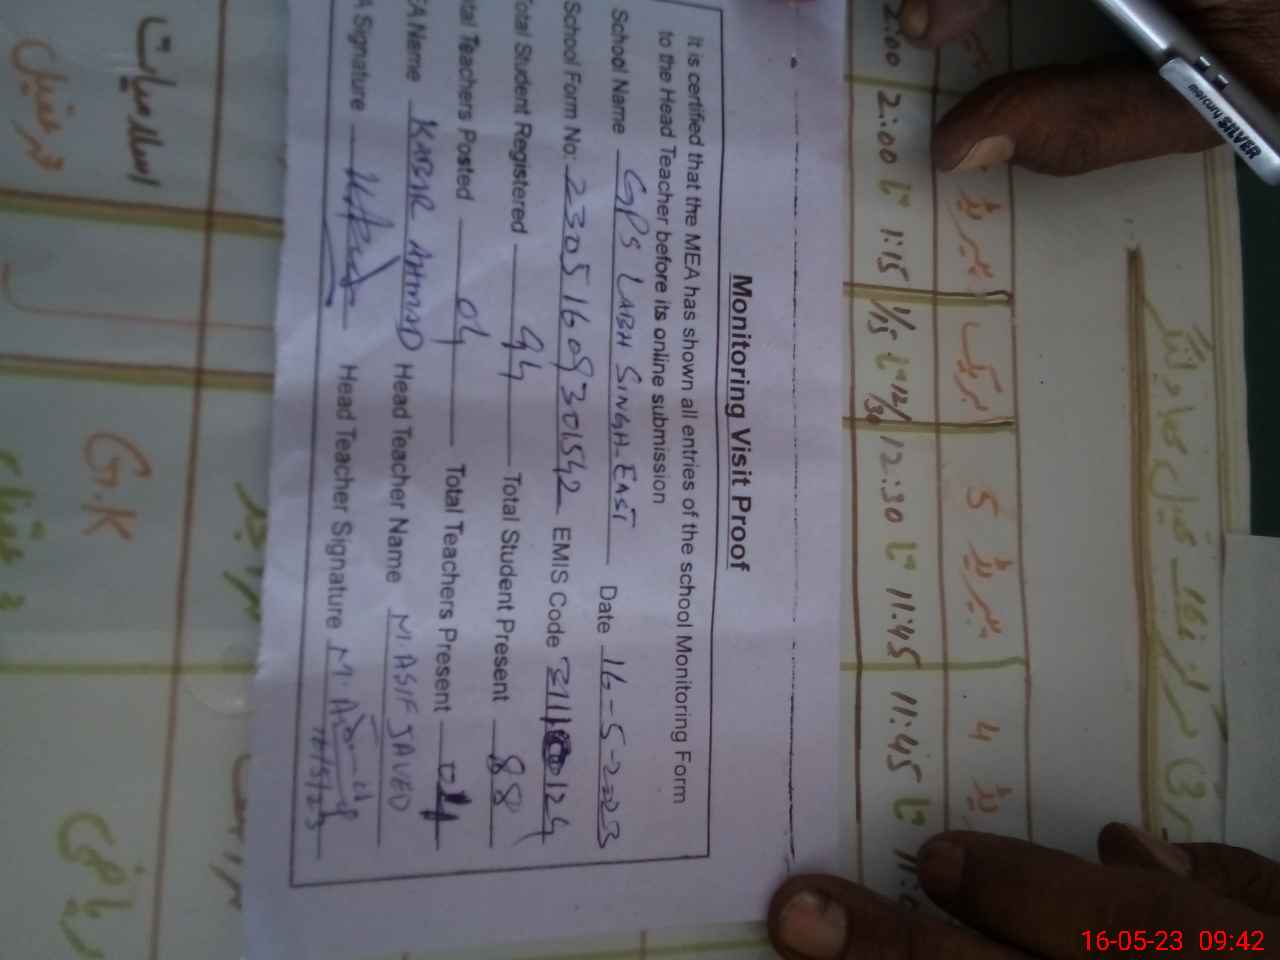 Monitoring Visit Proof
It is certified that the MEA has shown all entries of the school Monitoring Form
to the Head Teacher before its online submission
School Name GPS LABH SINGH-EAST Date 16-5-2023
School Form No: 23051609301542 EMIS Code
Total Student Registered 94 Total Student Present 88
Total Teachers Posted 04 Total Teachers Present 04
EA Name KABIR AHMAD Head Teacher Name M. ASIF JAVED
A Signature Head Teacher Signature
16/5/23
2:00 2:00 تا 1:15 1/15 تا 12/30 12:30 تا 11:45 11:45 تا
بریک 5 4
اسلامیات
G.K
ریاضی
mercury SILVER
16-05-23 09:42